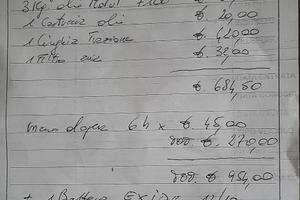 3 Kg olio Motul 7100 €.
1 Cartuccia olio €. 20,00
1 Cinghia Trazione €. 120,00
1 Filtro aria €. 32,00
€. 684,50
mano d'opera 6 h x €. 45,00
tot. €. 270,00
tot. €. 954,00
+ 1 Batteria EXIDE 12/10